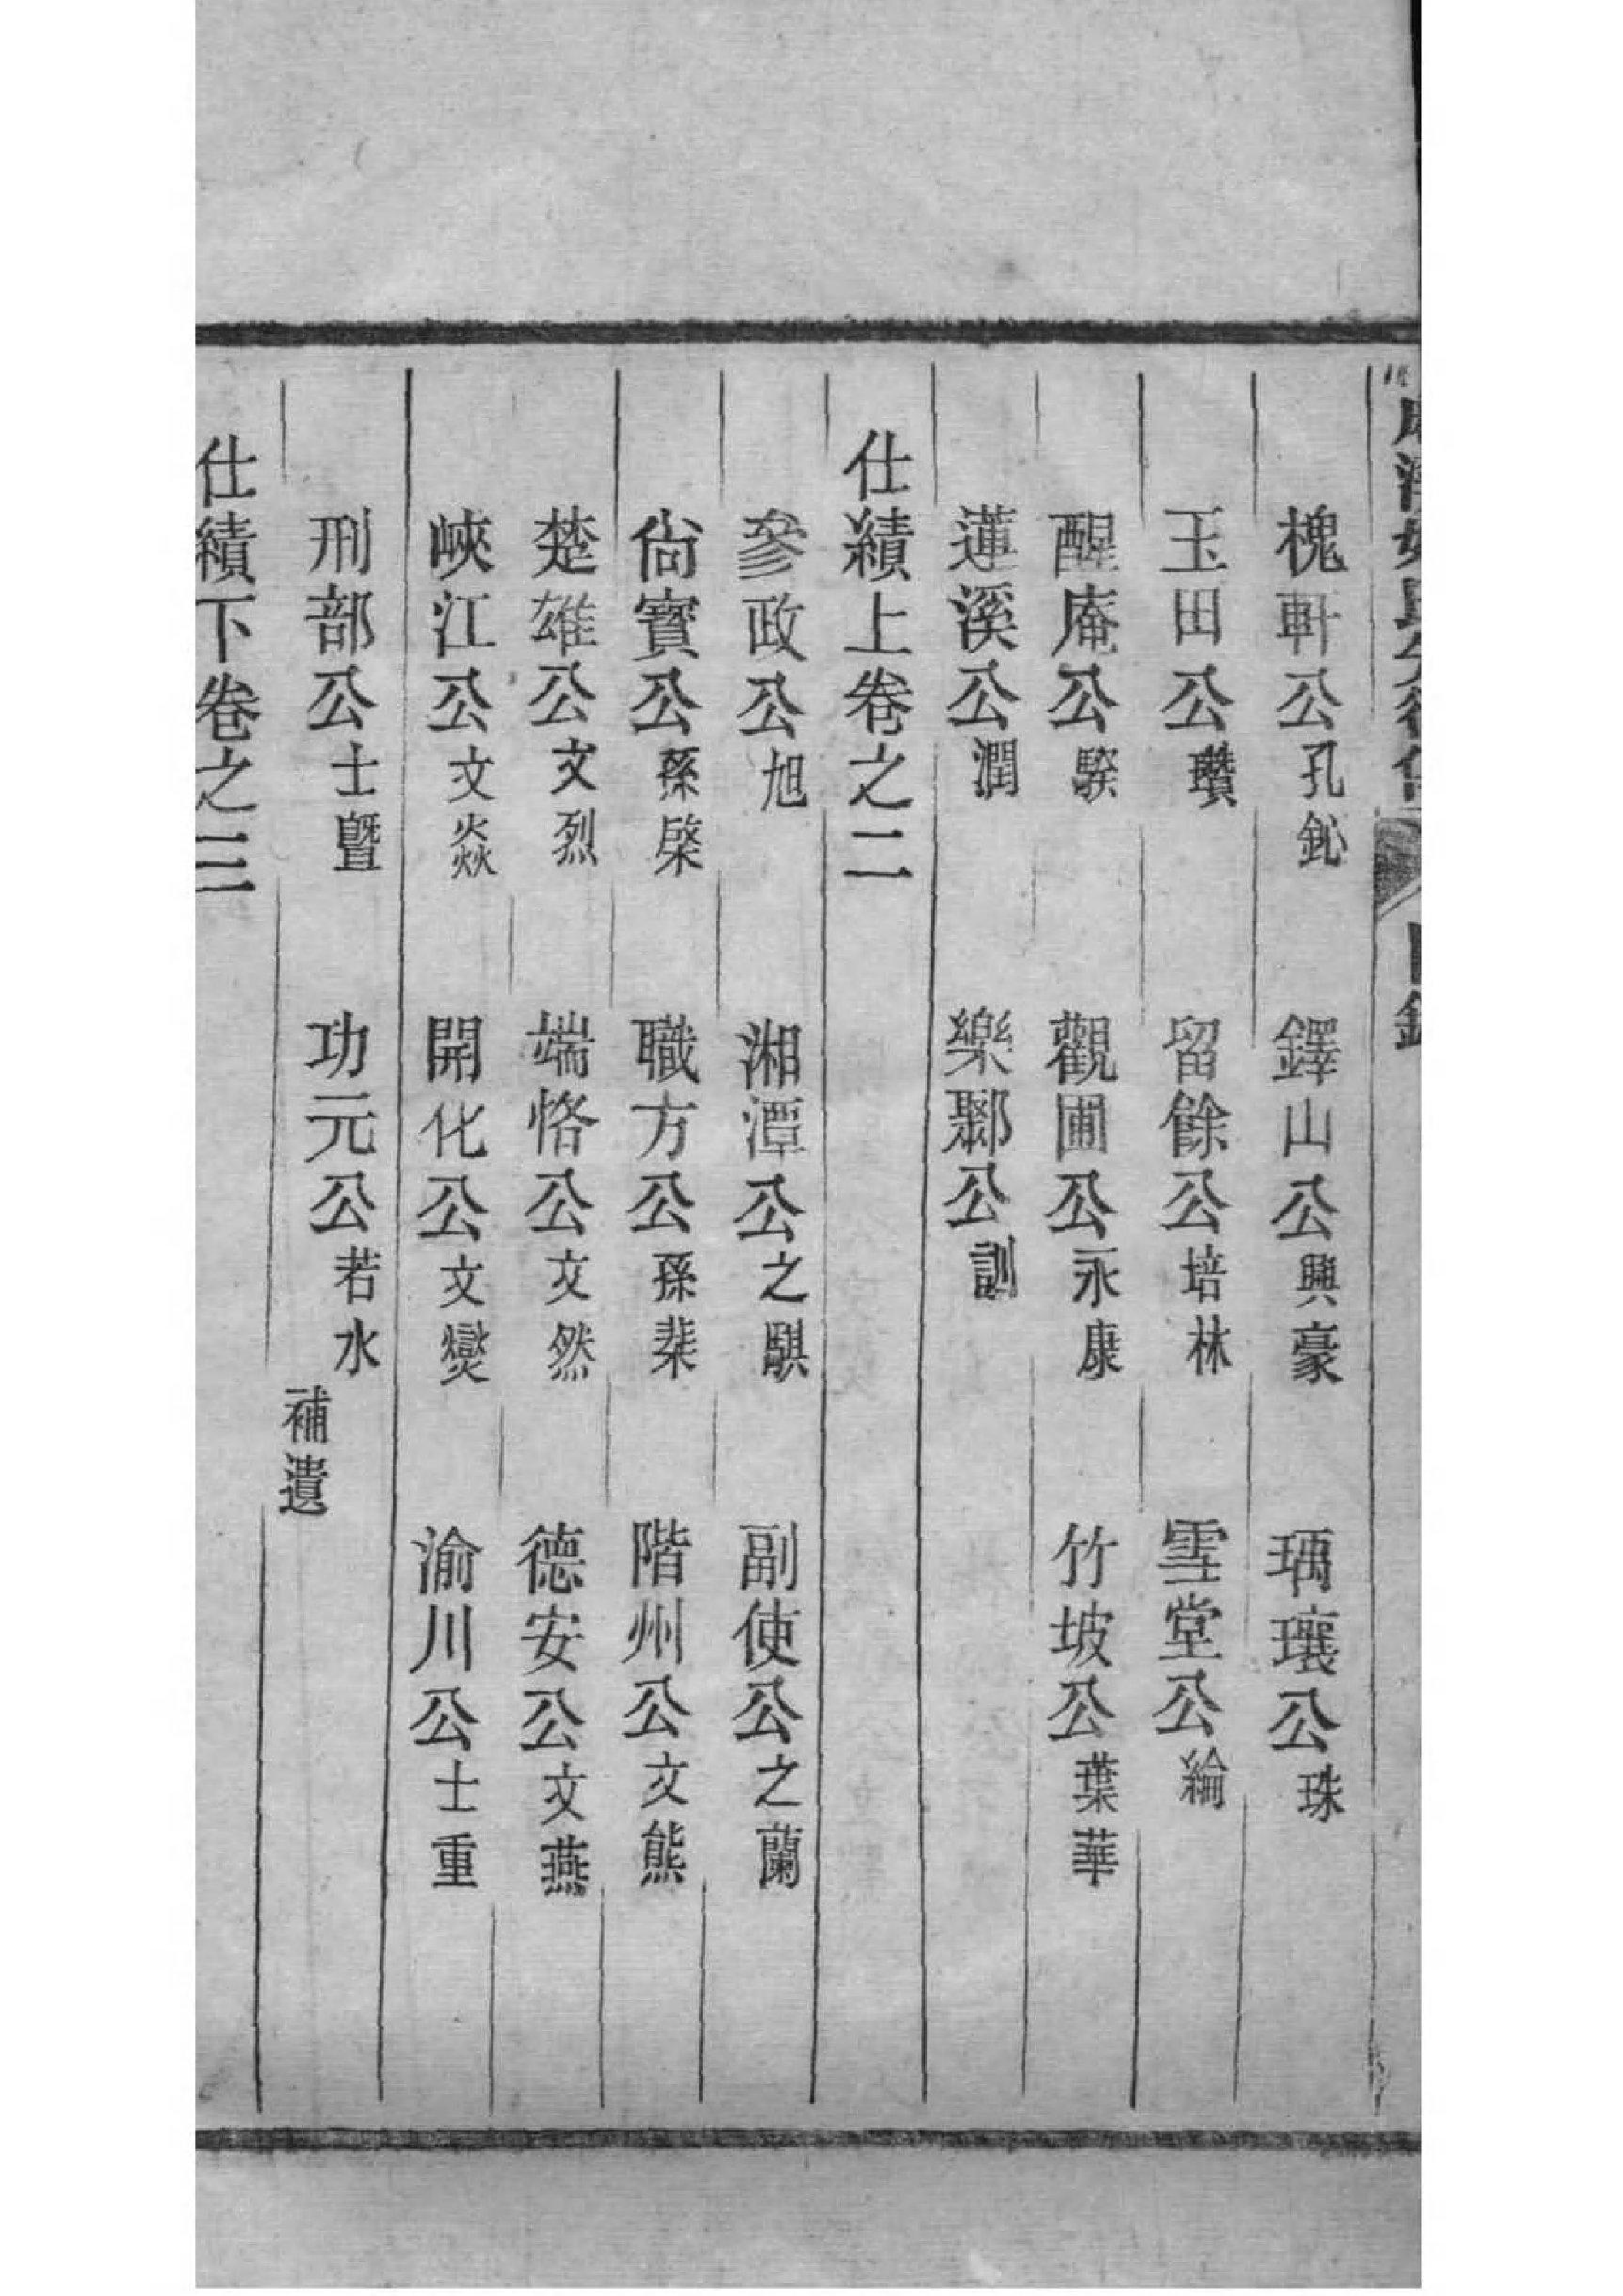 槐軒公孔鈊 鐸山公興豪 瑀瓖公珠
玉田公瓚 留餘公培林 雪堂公綸
醒庵公騤 觀圃公永康 竹坡公葉華
蓮溪公潤 樂鄹公訓
仕績上卷之二
參政公旭 湘潭公之騏 副使公之蘭
尙寳公孫棨 職方公孫棐 階州公文熊
楚雄公文烈 端恪公文然 德安公文燕
峽江公文焱 開化公文爕 渝川公士重
刑部公士曁 功元公若水 補遺
仕績下卷之三